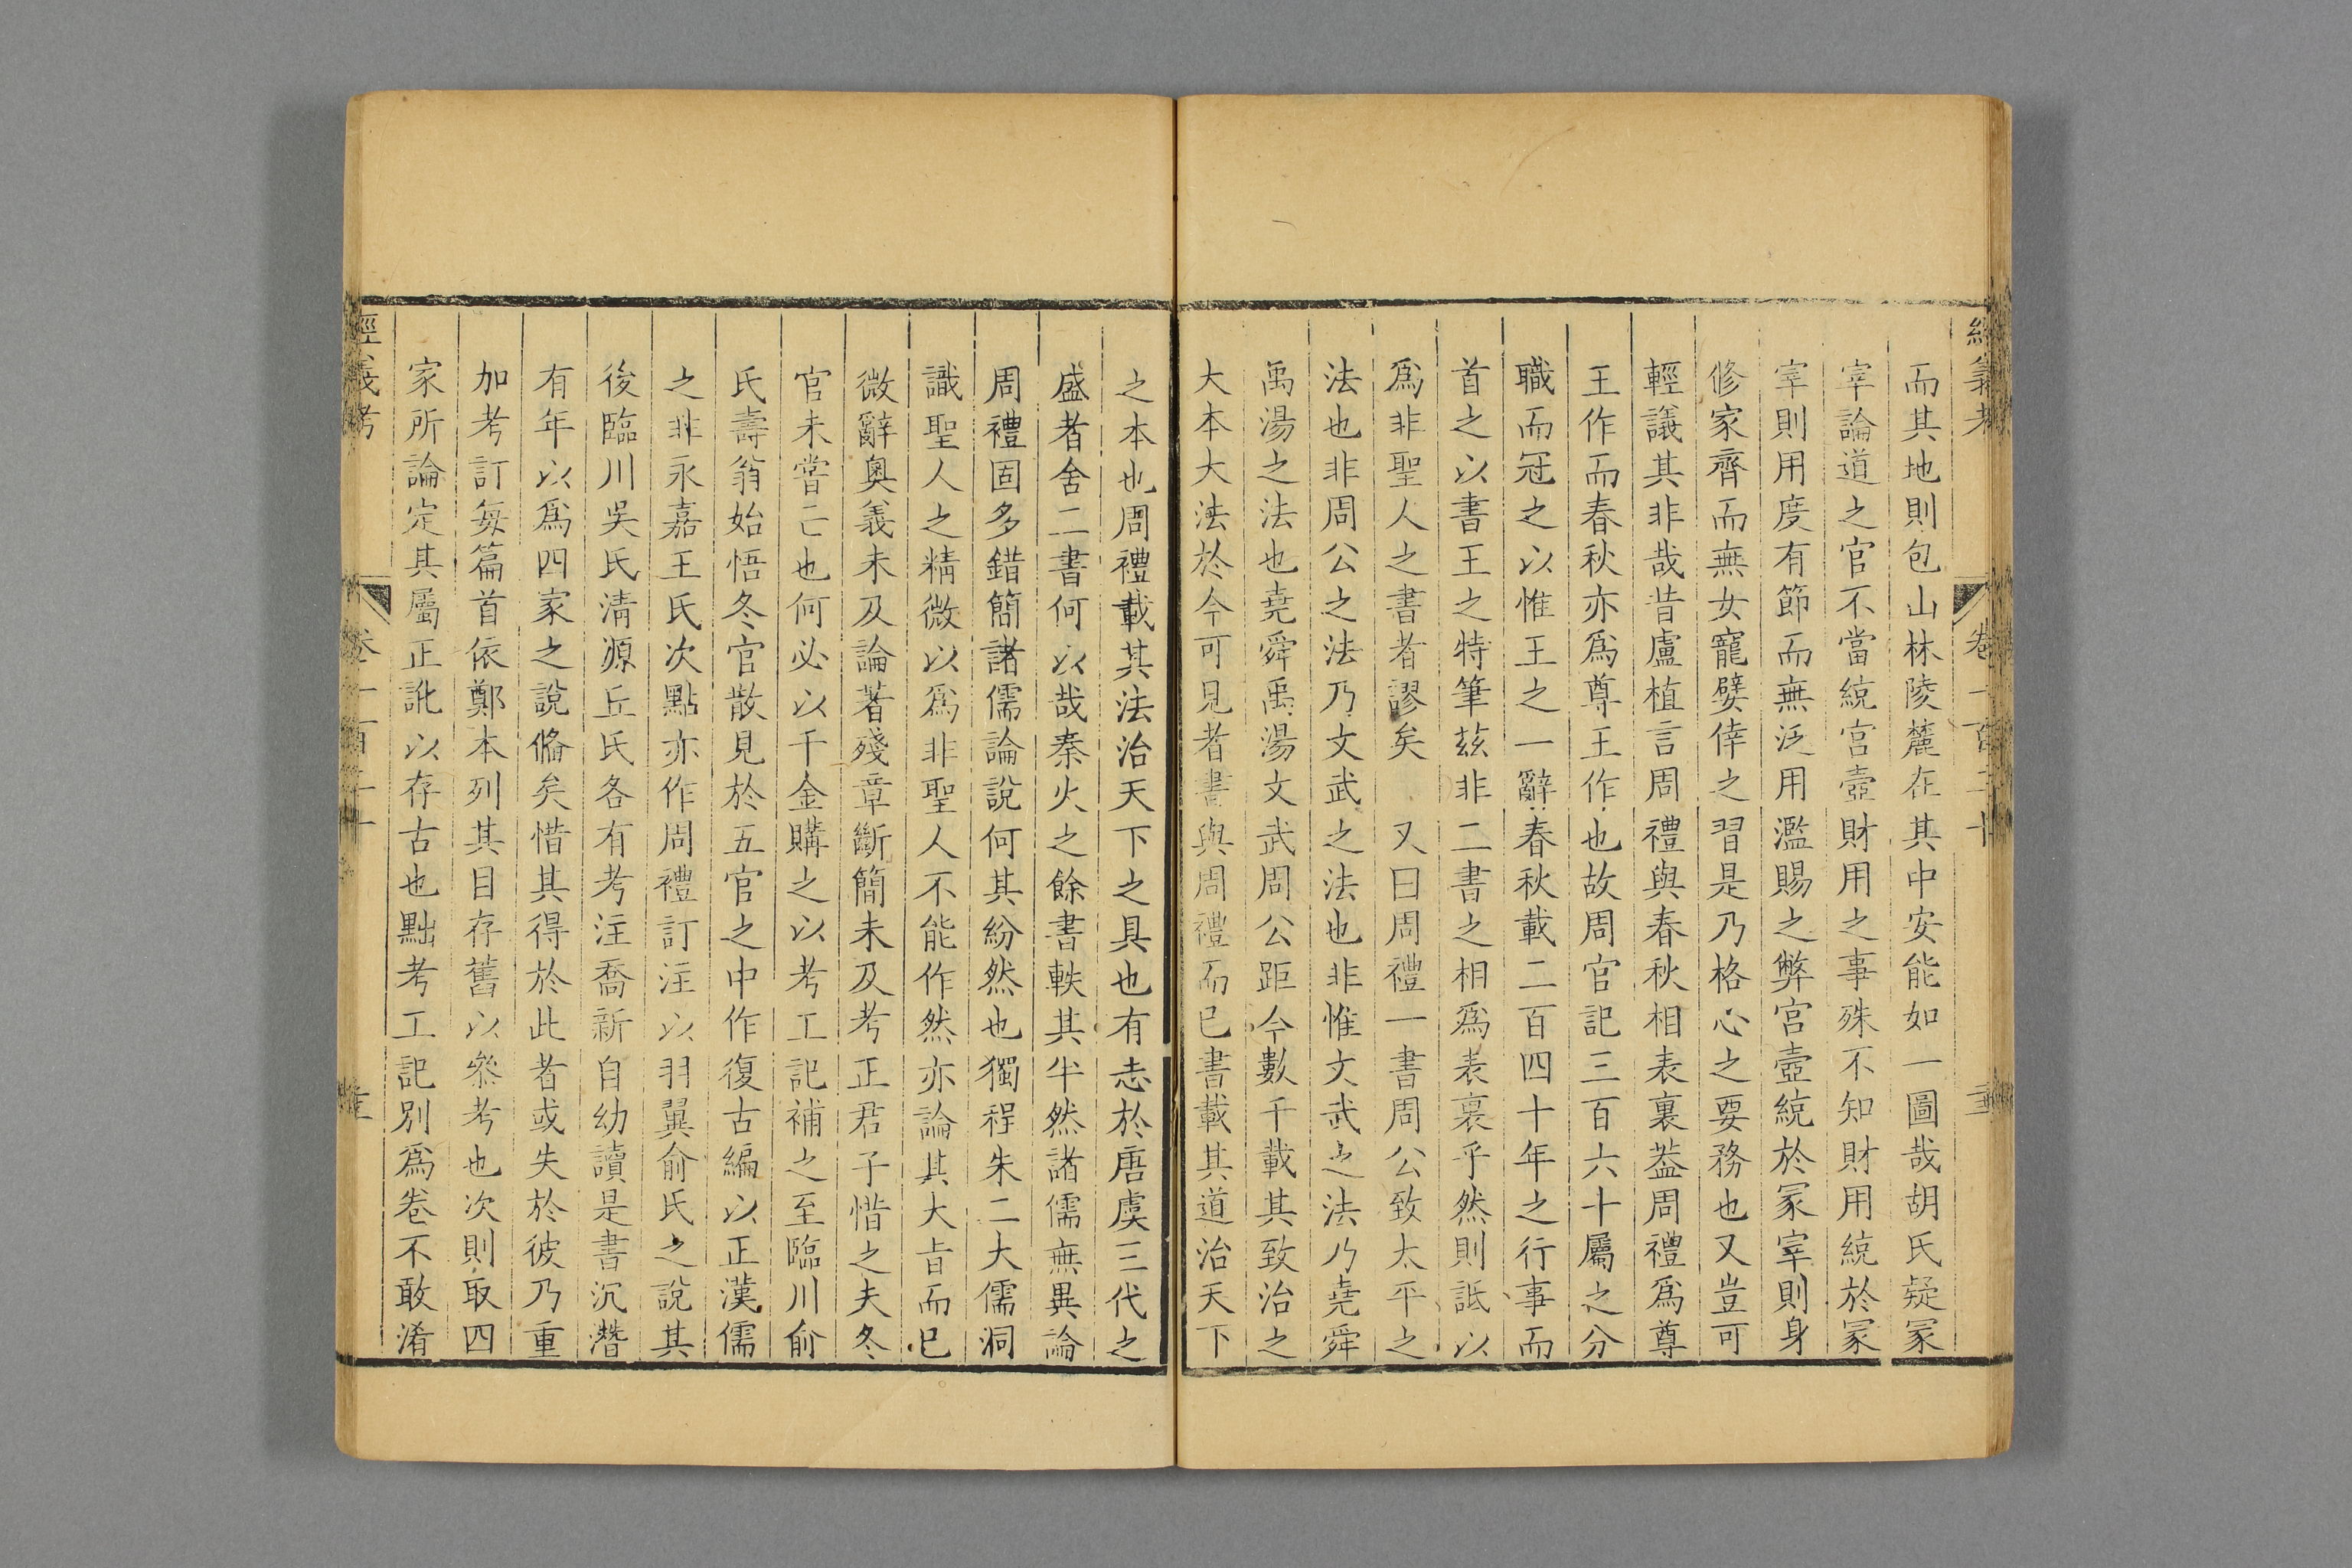 經義考 卷一百二十
而其地則包山林陵麓在其中安能如一圖哉胡氏疑冢
宰論道之官不當統宮壼財用之事殊不知財用統於冢
宰則用度有節而無泛用濫賜之弊宮壼統於冢宰則身
修家齊而無女寵嬖倖之習是乃格心之要務也又豈可
輕議其非哉昔盧植言周禮與春秋相表裏葢周禮爲尊
王作而春秋亦爲尊王作也故周官記三百六十屬之分
職而冠之以惟王之一辭春秋載二百四十年之行事而
首之以書王之特筆茲非二書之相爲表裏乎然則詆以
爲非聖人之書者謬矣 又曰周禮一書周公致太平之
法也非周公之法乃文武之法也非惟文武之法乃堯舜
禹湯之法也堯舜禹湯文武周公距今數千載其致治之
大本大法於今可見者書與周禮而已書載其道治天下
之本也周禮載其法治天下之具也有志於唐虞三代之
盛者舍二書何以哉秦火之餘書軼其半然諸儒無異論
周禮固多錯簡諸儒論說何其紛然也獨程朱二大儒洞
識聖人之精微以爲非聖人不能作然亦論其大旨而已
微辭奧義未及論著殘章斷簡未及考正君子惜之夫冬
官未嘗亡也何必以千金購之以考工記補之至臨川俞
氏壽翁始悟冬官散見於五官之中作復古編以正漢儒
之非永嘉王氏次點亦作周禮訂注以羽翼俞氏之說其
後臨川吳氏清源丘氏各有考注喬新自幼讀是書沉潛
有年以爲四家之說俻矣惜其得於此者或失於彼乃重
加考訂每篇首依鄭本列其目存舊以叅考也次則取四
家所論定其屬正訛以存古也黜考工記別爲卷不敢淆
經義考 卷一百二十